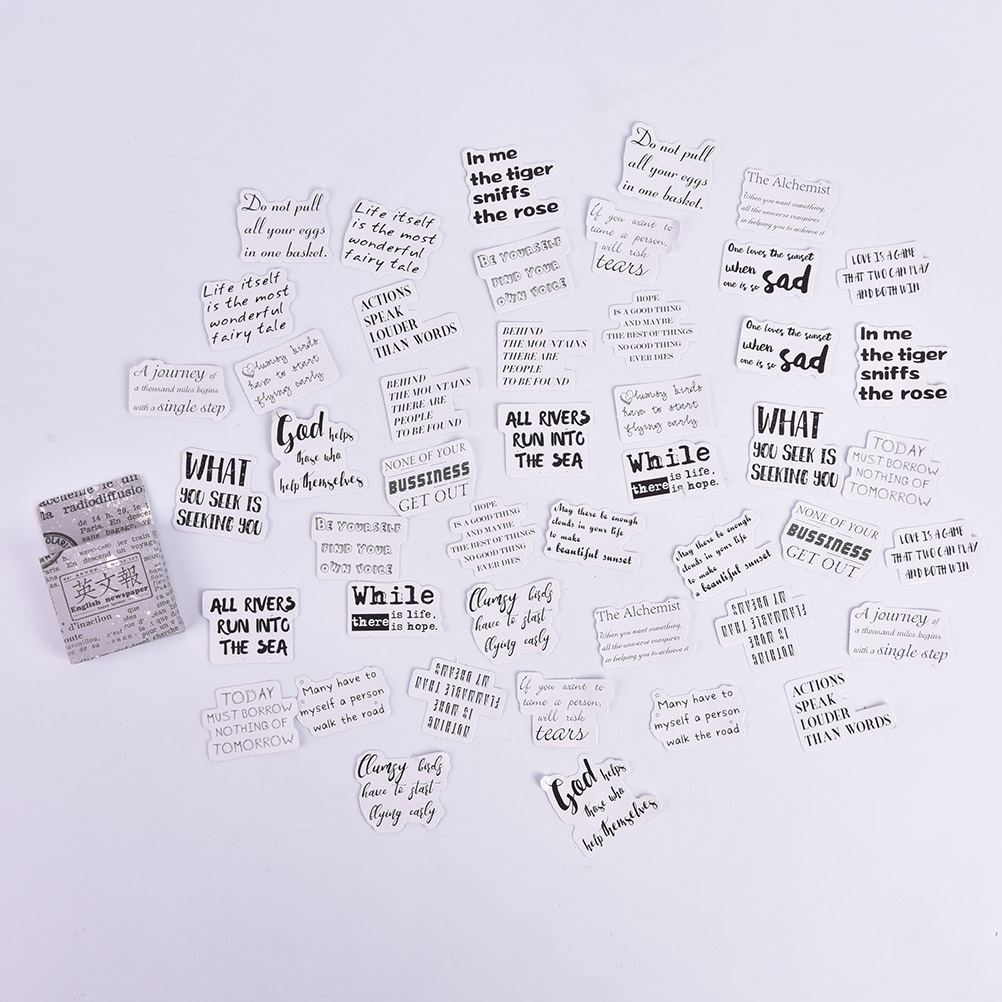 In me
the tiger
sniffs
the rose
Do not pull
all your eggs
in one basket.
The Alchemist
When you want something,
all the universe conspires
in helping you to achieve it
Do not pull
all your eggs
in one basket.
Life itself
is the most
wonderful
fairy tale
BE YOURSELF
FIND YOUR
OWN VOICE
If you want to
tame a person,
will risk
tears
One loves the sunset
when
one is so sad
LOVE IS A GAME
THAT TWO CAN PLAY
AND BOTH WIN
Life itself
is the most
wonderful
fairy tale
ACTIONS
SPEAK
LOUDER
THAN WORDS
HOPE
IS A GOOD THING
AND MAYBE
THE BEST OF THINGS
NO GOOD THING
EVER DIES
BEHIND
THE MOUNTAINS
THERE ARE
PEOPLE
TO BE FOUND
One loves the sunset
when
one is so sad
In me
the tiger
sniffs
the rose
A journey of
a thousand miles begins
with a single step
Clumsy birds
have to start
flying early
BEHIND
THE MOUNTAINS
THERE ARE
PEOPLE
TO BE FOUND
Clumsy birds
have to start
flying early
God helps
those who
help themselves
ALL RIVERS
RUN INTO
THE SEA
WHAT
YOU SEEK IS
SEEKING YOU
TODAY
MUST BORROW
NOTHING OF
TOMORROW
WHAT
YOU SEEK IS
SEEKING YOU
NONE OF YOUR
BUSSINESS
GET OUT
While
there is life.
is hope.
BE YOURSELF
FIND YOUR
OWN VOICE
HOPE
IS A GOOD THING
AND MAYBE
THE BEST OF THINGS
NO GOOD THING
EVER DIES
May there be enough
clouds in your life
to make
a beautiful sunset
May there be enough
clouds in your life
to make
a beautiful sunset
NONE OF YOUR
BUSSINESS
GET OUT
LOVE IS A GAME
THAT TWO CAN PLAY
AND BOTH WIN
la radiodiffusio
英文報
English newspaper
d'inaction
ALL RIVERS
RUN INTO
THE SEA
While
there is life.
is hope.
Clumsy birds
have to start
flying early
The Alchemist
When you want something,
all the universe conspires
in helping you to achieve it
NOTHING
IS MORE
FLAMMABLE THAN
MY DREAMS
A journey of
a thousand miles begins
with a single step
TODAY
MUST BORROW
NOTHING OF
TOMORROW
Many have to
myself a person
walk the road
NOTHING
IS MORE
FLAMMABLE THAN
MY DREAMS
If you want to
tame a person,
will risk
tears
Many have to
myself a person
walk the road
ACTIONS
SPEAK
LOUDER
THAN WORDS
Clumsy birds
have to start
flying early
God helps
those who
help themselves